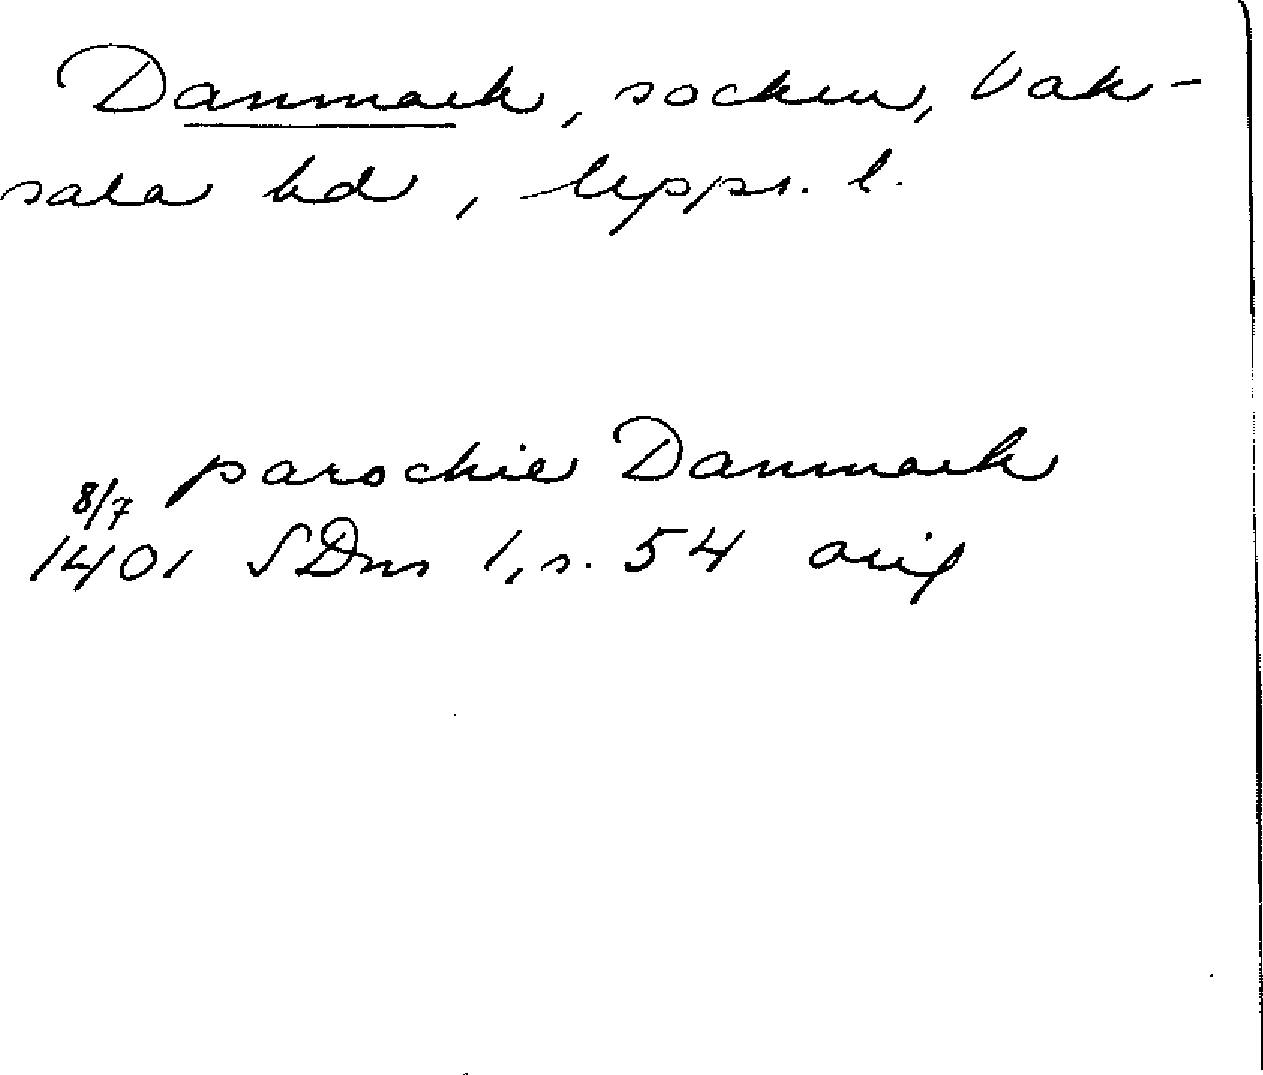 Danmark, socken, Vak-
sala hd, Upps. l.
parochie Danmark
8/7
1401 SDns 1, s. 54 orig